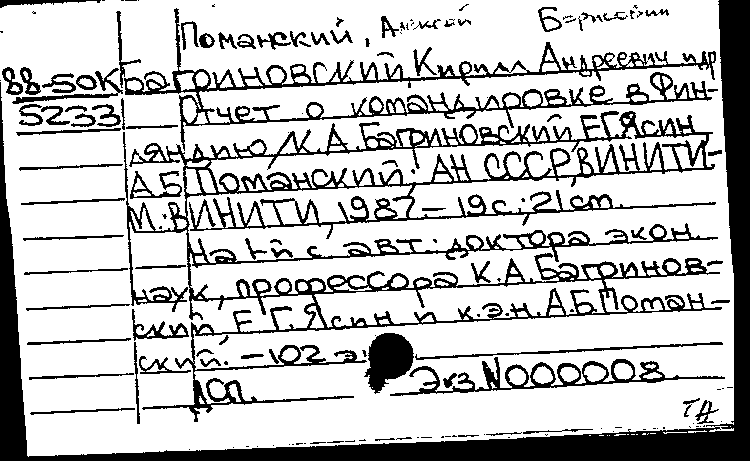 Поманский, Алексей Борисович
88-50К Багриновский, Кирилл Андреевич и др
5233 Отчет о командировке в Фин-
ляндию / К.А.Багриновский, Е.Г.Ясин,
А.Б Поманский; АН СССР, ВИНИТИ-
М.: ВИНИТИ, 1987 - 19с.; 21см.
На 1-й с авт.: доктора экон.
наук, профессора К.А.Багринов-
ский, Е.Г.Ясин и к.э.н. А.Б.Поман-
ский. - 102 э
ДСП. Экз.N000008